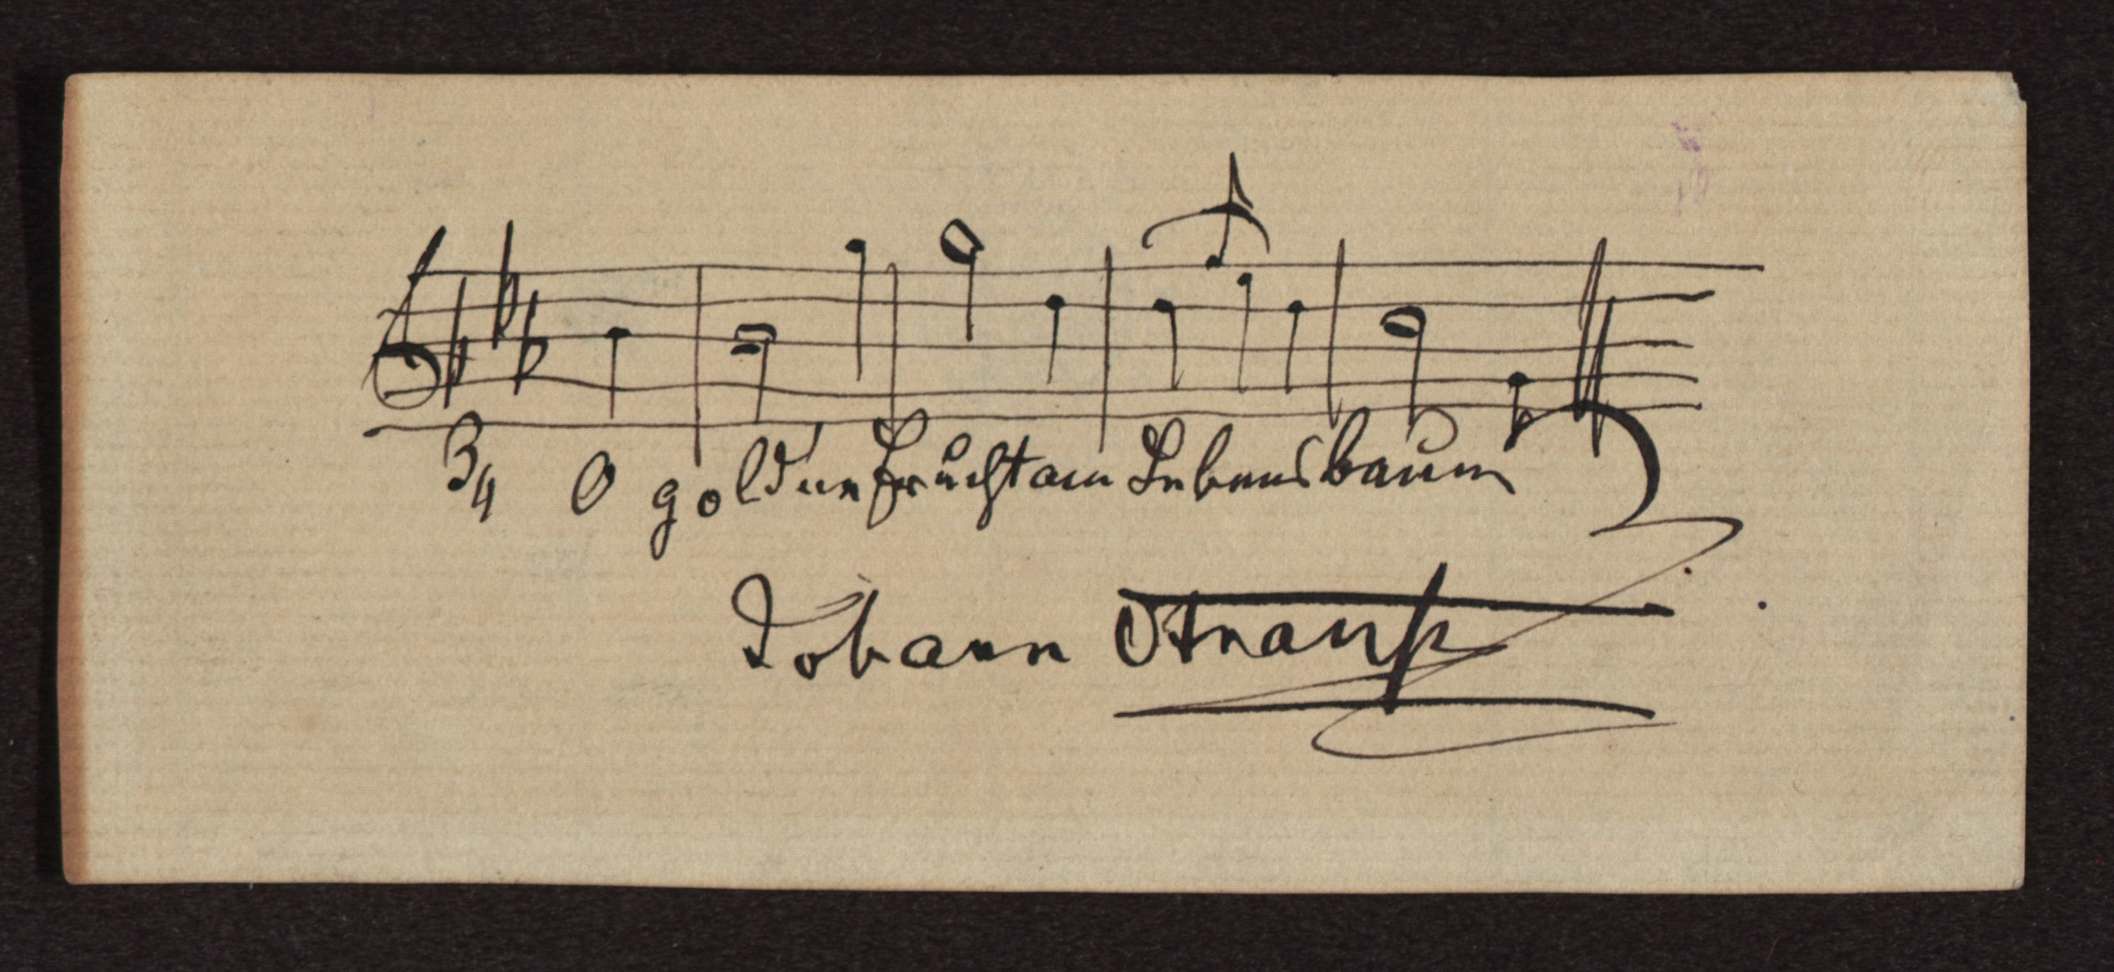 3/4 O goldne Frucht am Lebensbaum
Johann Strauß